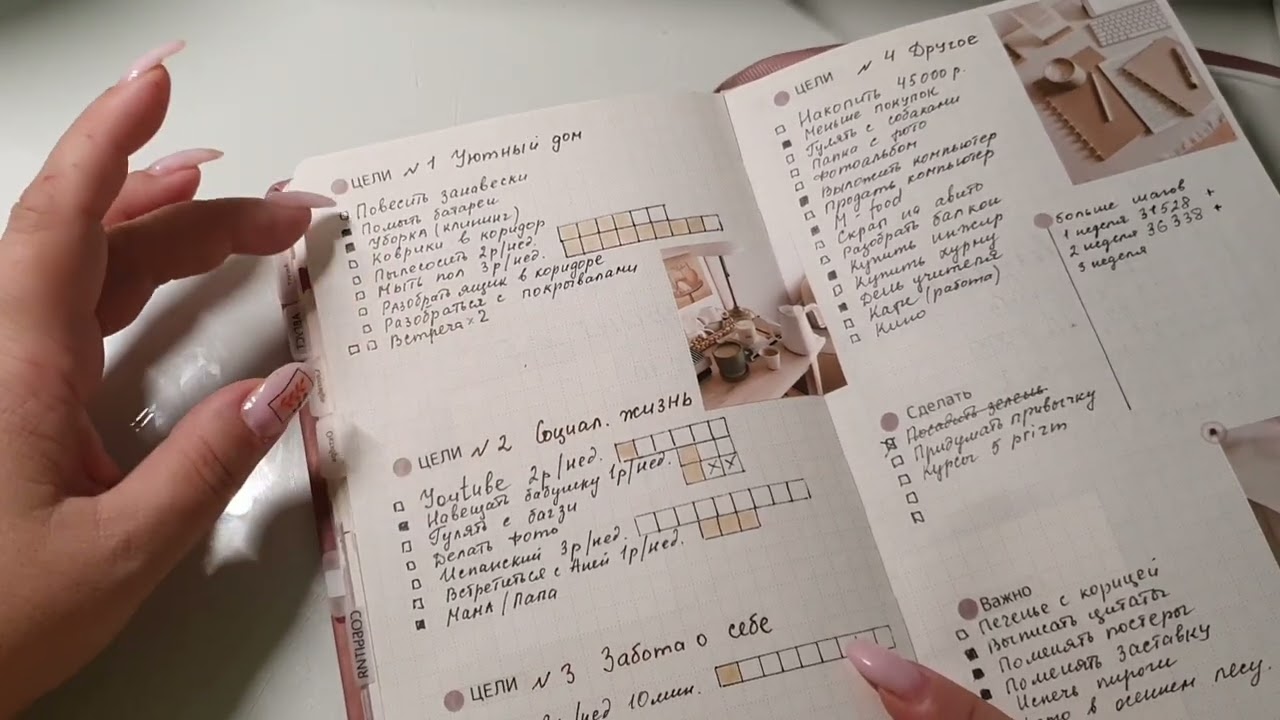 ЦЕЛИ №1 Уютный дом
Повесить занавески
Помыть батареи
Уборка (клининг)
Коврики в коридор
Пылесосить 2р/нед.
Мыть пол 3р/нед.
Разобрать ящик в коридоре
Разобраться с покрывалами
Встреча x2
ЦЕЛИ №2 Социал. жизнь
Youtube 2р/нед.
Навещать бабушку 1р/нед.
Гулять с багзи
Делать фото
Испанский 3р/нед.
Встретиться с Аней 1р/нед.
Мама/Папа
ЦЕЛИ №3 Забота о себе
/нед 10 мин.
ЦЕЛИ №4 Другое
Накопить 45000р.
Меньше покупок
Гулять с собаками
Папка с фото
Фотоальбом
Выложить компьютер
Продать компьютер
М - food
Скрап на авито
Разобрать балкон
Купить инжир
Купить хурму
День учителя
Кафе (работа)
Кино
больше шагов
1 неделя 31528 +
2 неделя 36338 +
3 неделя
Сделать
Посадить зелень
Придумать привычку
Курсы 5 prizm
Важно
Печенье с корицей
Выписать цитаты
Поменять постеры
Поменять заставку
Испечь пироги
в осеннем лесу.